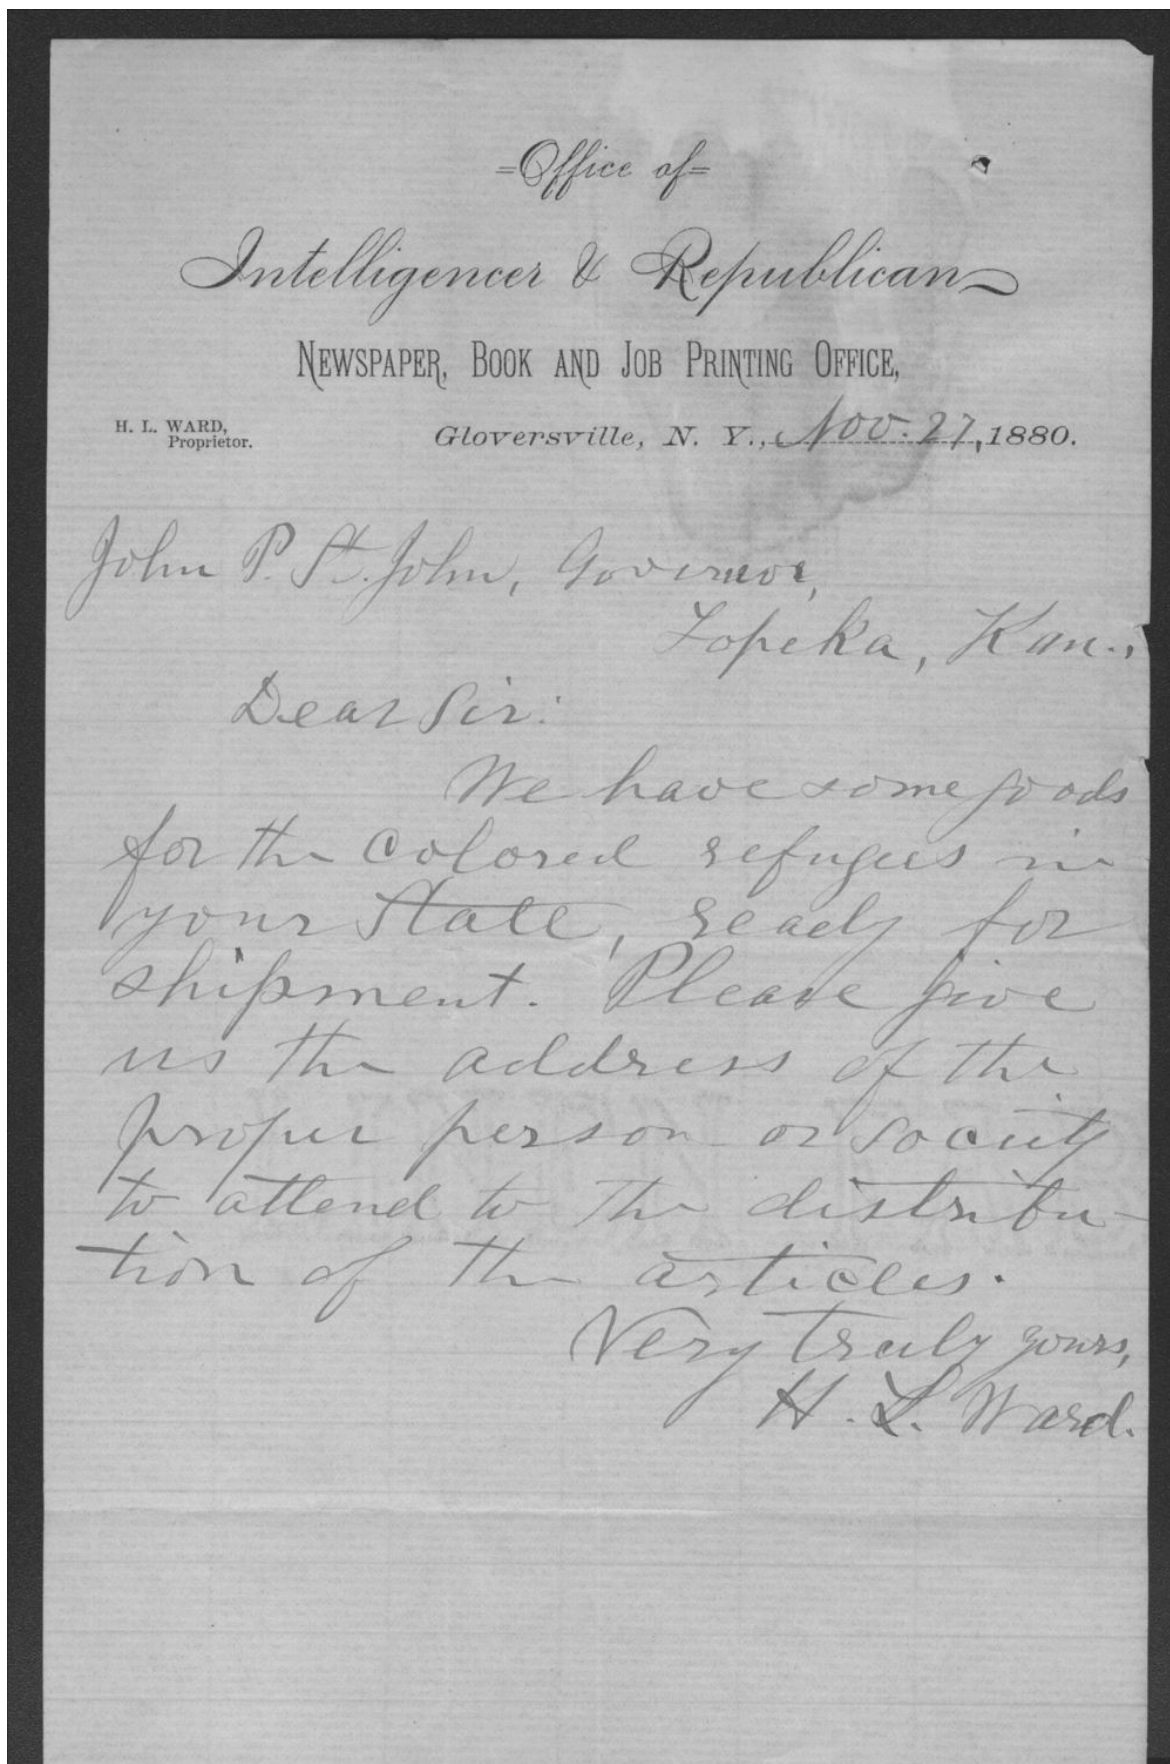 =Office of=
Intelligencer & Republican
NEWSPAPER, BOOK AND JOB PRINTING OFFICE,
H. L. WARD,
Proprietor.
Gloversville, N. Y., Nov. 27, 1880.
John P. St. John, Governor,
Topeka, Kan.,
Dear Sir:
We have some goods
for the colored refugees in
your State, ready for
shipment. Please give
us the address of the
proper person or society
to attend to the distribu-
tion of the articles.
Very truly yours,
H. L. Ward.